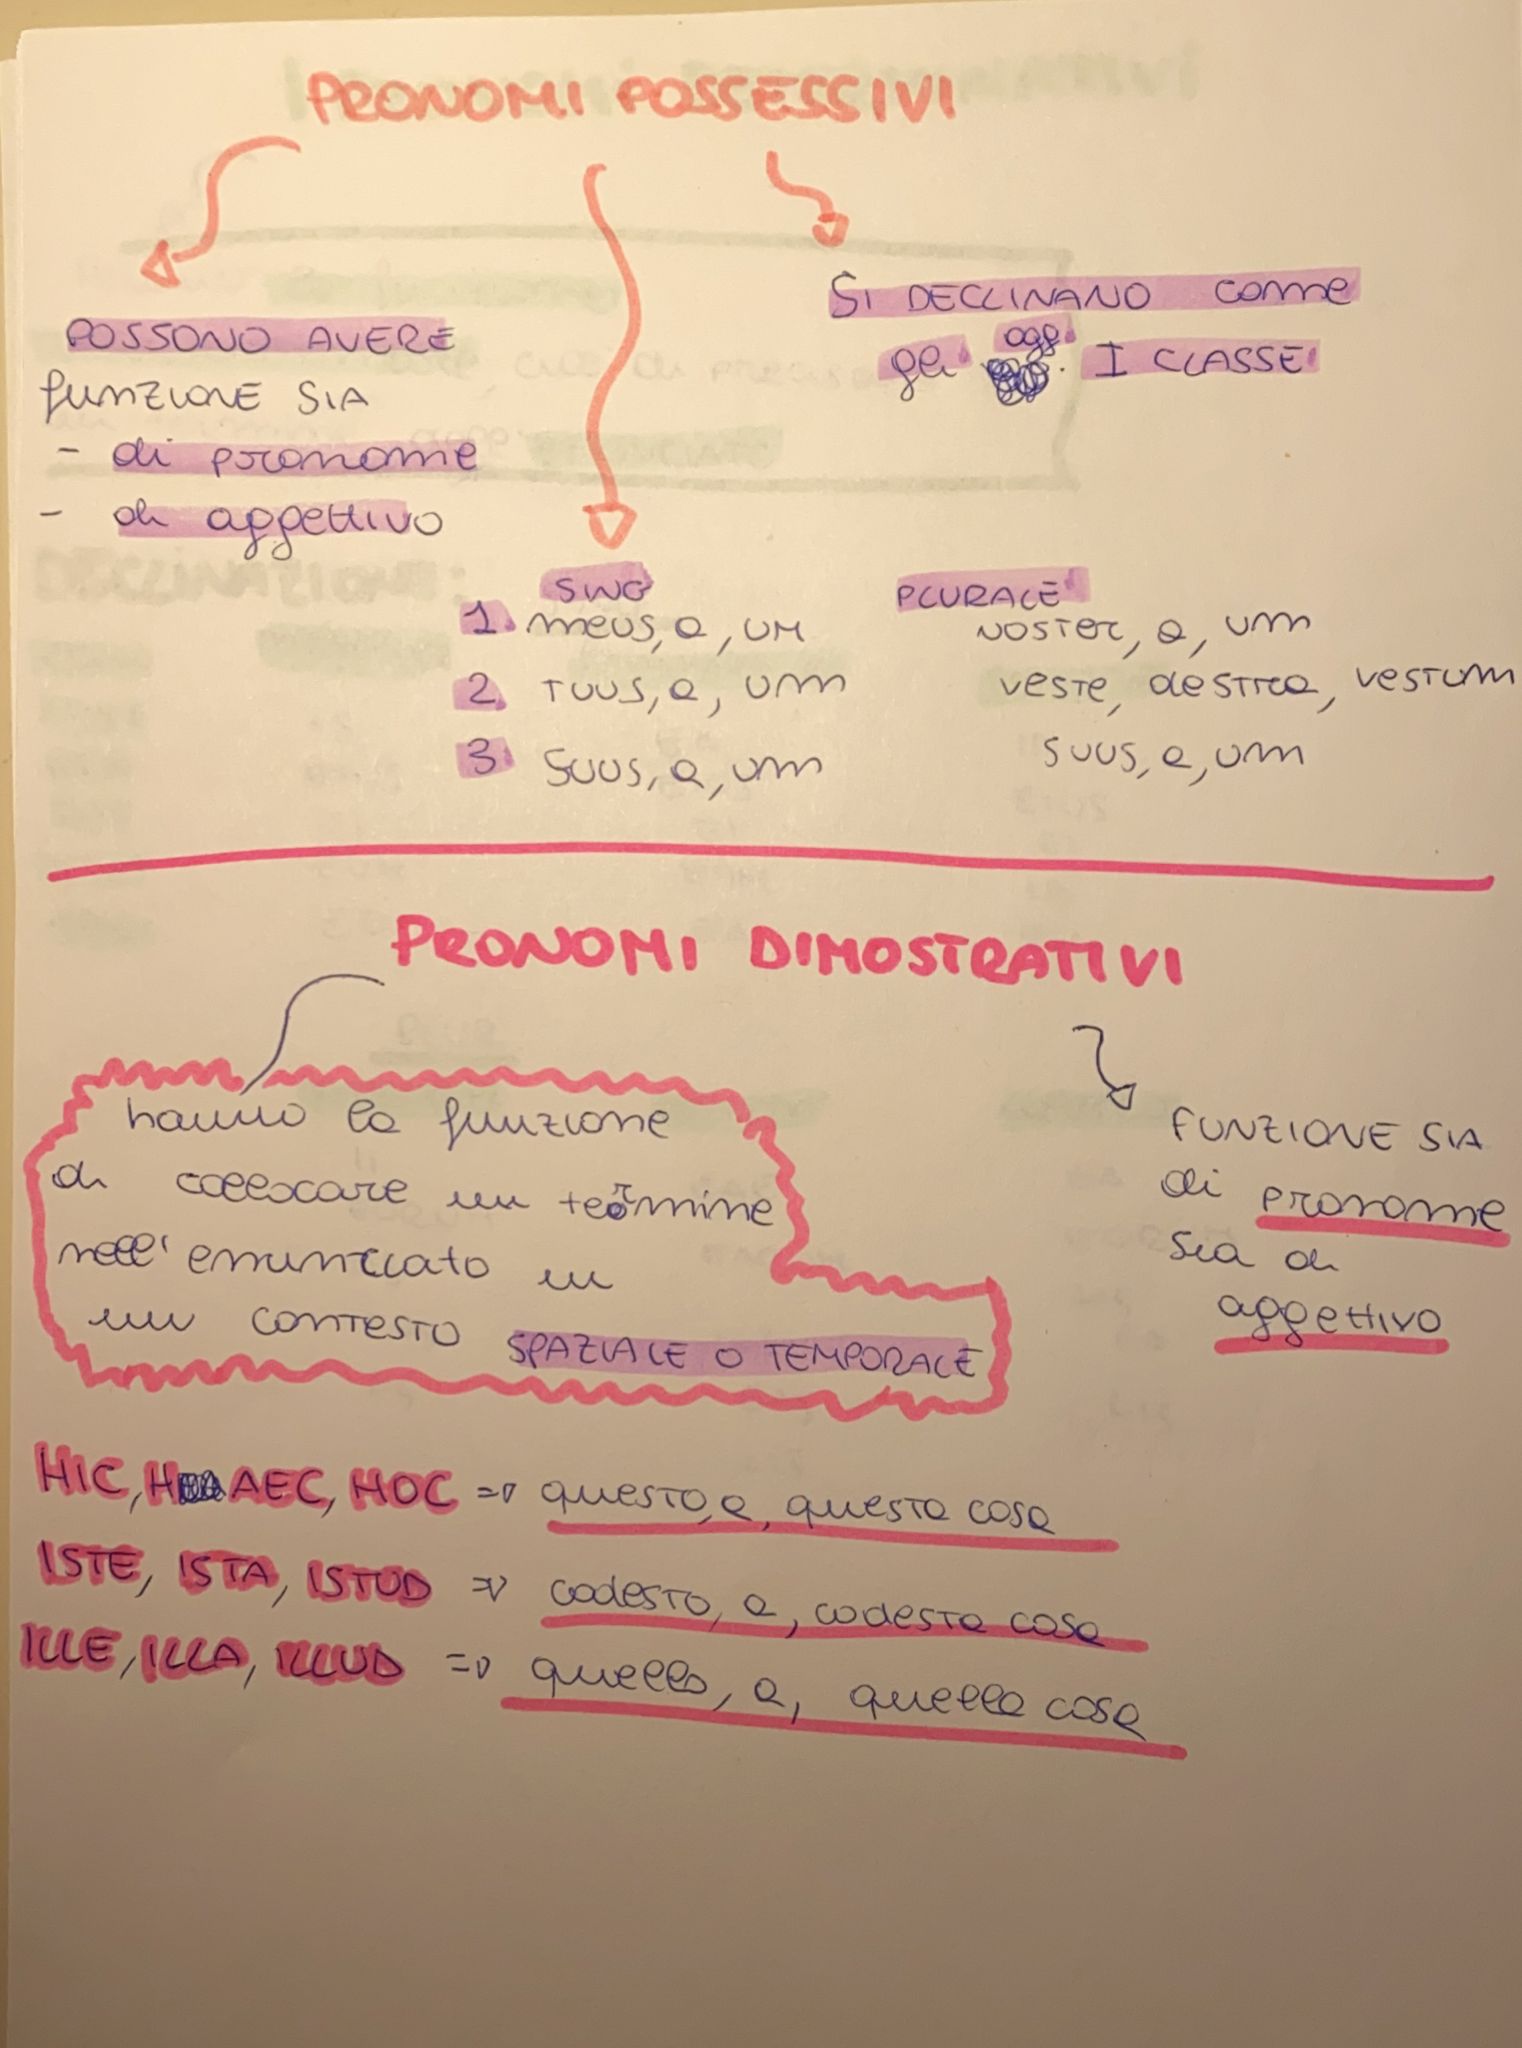 PRONOMI POSSESSIVI
POSSONO AVERE
funzIONE SIA
- di pronome
- di aggettivo
SI DECLINANO come
gli agg. I CLASSE
SING
1. meus, a, um
2. TUUS, a, um
3. SUUS, a, um
PLURALE
NOSTER, a, um
VESTE, destra, VESTUM
SUUS, a, um
PRONOMI DIMOSTRATIVI
hanno la funzione
di collocare un termine
nell'enunciato in
un contesto SPAZIALE O TEMPORALE
FUNZIONE SIA
di pronome
sia di
aggettivo
HIC, HAEC, HOC => questo, a, questa cosa
ISTE, ISTA, ISTUD => codesto, a, codesta cosa
ILLE, ILLA, ILLUD => quello, a, quella cosa